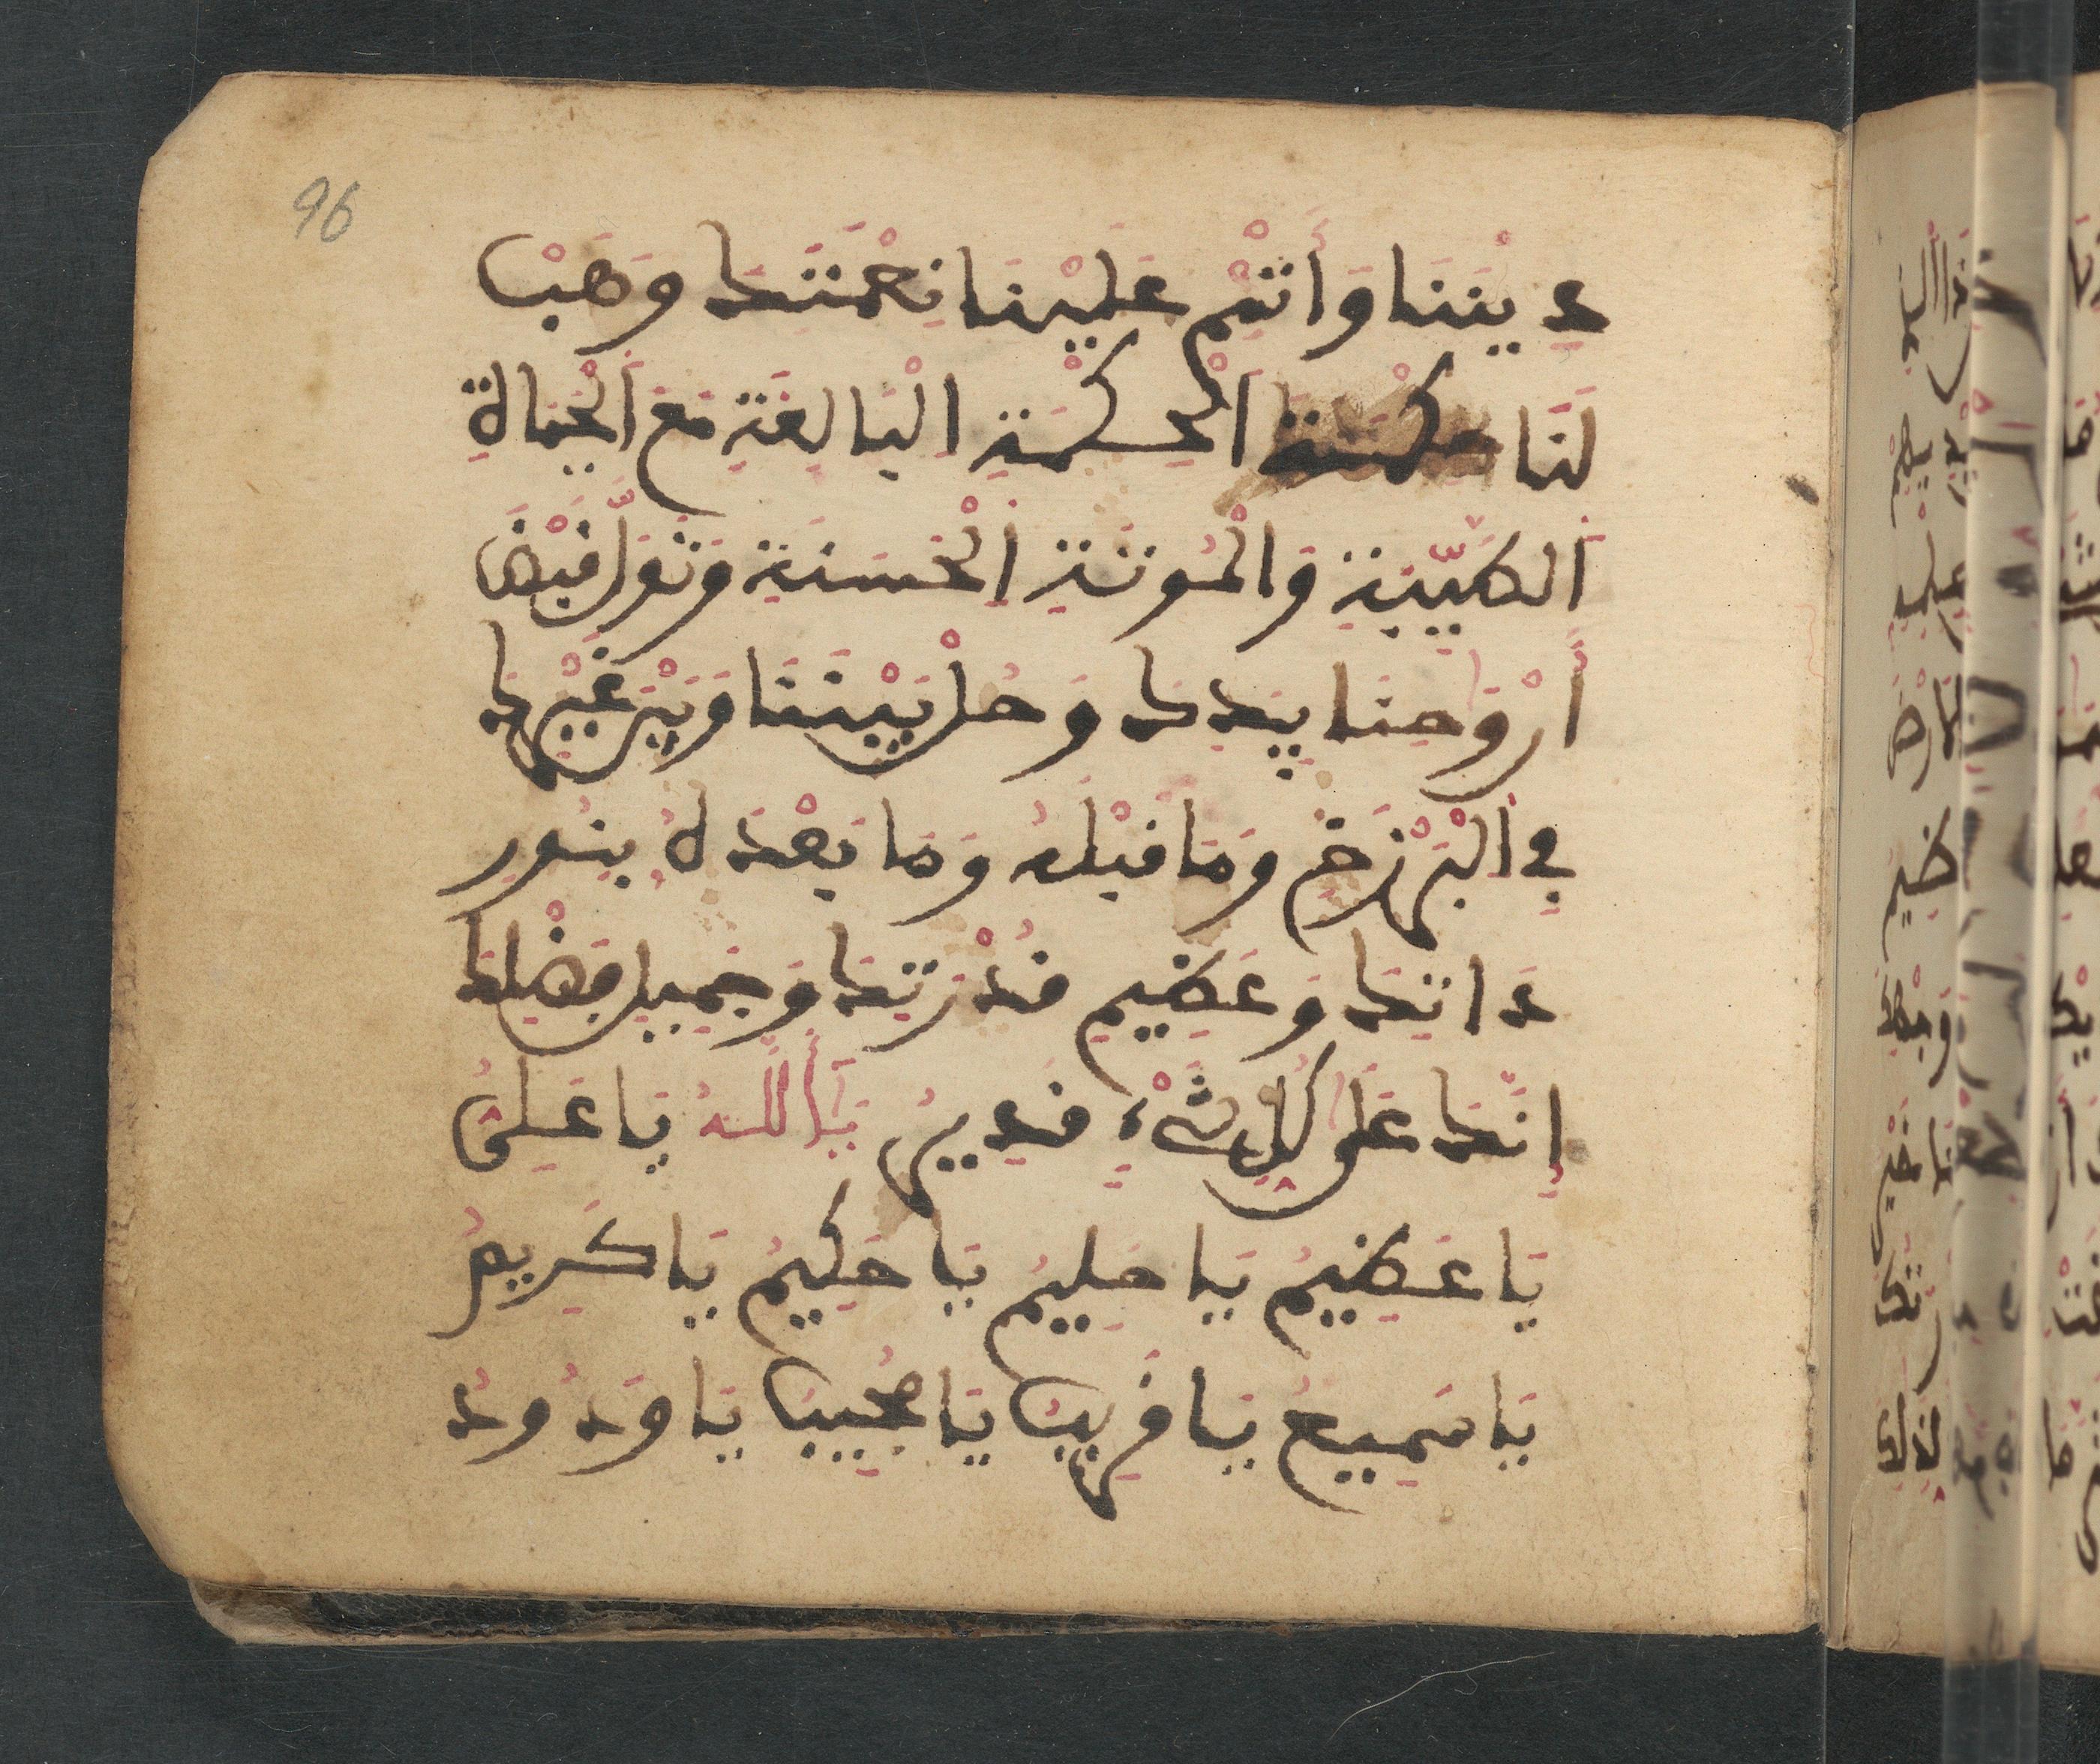 96
دِينَنَا وَأَتْمِمْ عَلَيْنَا نِعْمَتَكَ وَهَبْ
لَنَا حِكْمَةَ اَلْحِكْمَةِ الْبَالِغَةِ مَعَ اَلْحَيَاةِ
اَلطَّيِّبَةِ وَالْمَوْتَةِ اِلْحَسَنَةِ وَتَوَلَّ قَبْضَ
أَرْوَاحِنَا بِيَدِكَ وَحُلْ بَيْنَنَا وَبَيْنَ غَيْرِكَ
فِي اَلْبَرْزَخِ وَمَا قَبْلَهُ وَمَا بَعْدَهُ بِنُورِ
ذَاتِكَ وَعَظِيمِ قُدْرَتِكَ وَجَمِيلِ فَضْلِكَ
إِنَّكَ عَلَى كُلِّ شَيْءٍ قَدِيرٌ يَا أَللَّهُ يَا عَلِيُّ
يَا عَظِيمُ يَا حَلِيمُ يَا حَكِيمُ يَا كَرِيمُ
يَا سَمِيعُ يَا قَرِيبُ يَا مُجِيبُ يَا وَدُودُ